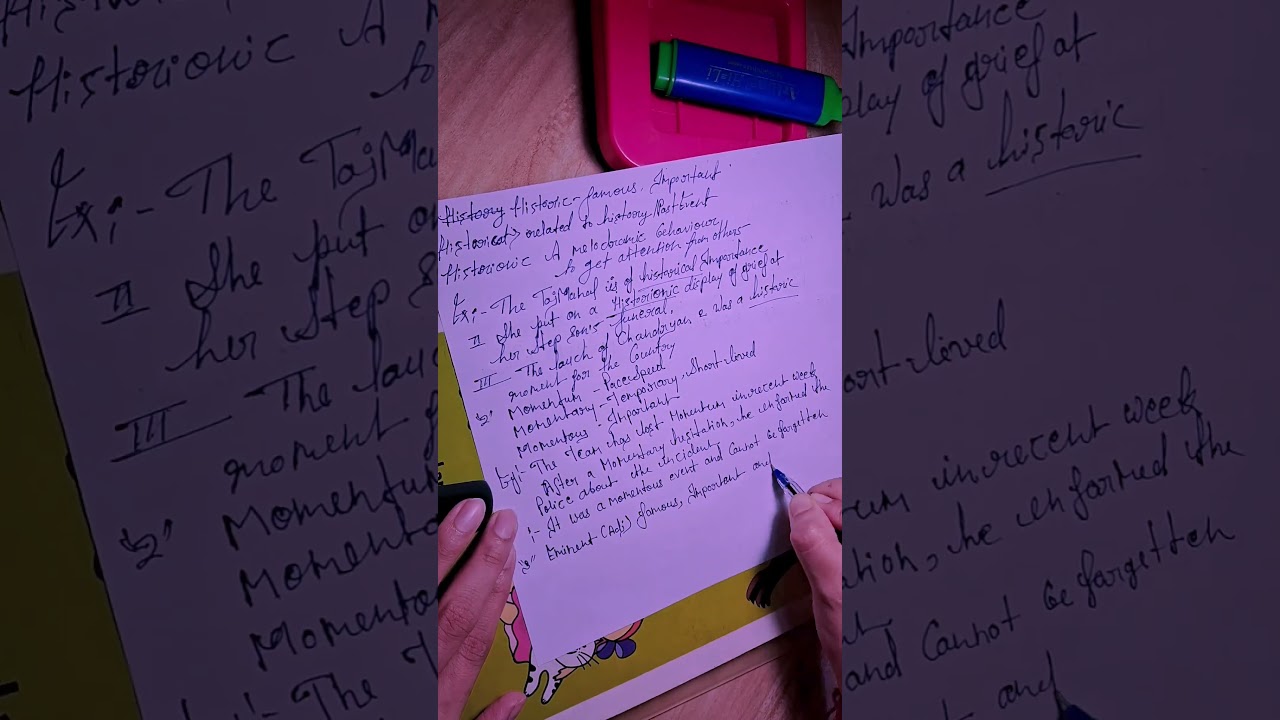 History Historic - famous. Important
Historical > related to history/Past Event
Historionic A melodramic behaviour
to get attention from others
Ex:- The TajMahal is of historical Importance
II She put on a Historionic display of grief at
her step son's funeral.
III The lauch of Chandryan 2 was a historic
moment for the Country
2" Momentum - Pace, Speed
Momentary - Temporary, Short-lived
Momentous - Important
Eg:- The Team has lost Momentum in recent week
After a Momentary hesitation, he enformed the
Police about the incident
:- It was a momentous event and Cannot be forgetten
"3" Eminent (Adj) famous, Important and